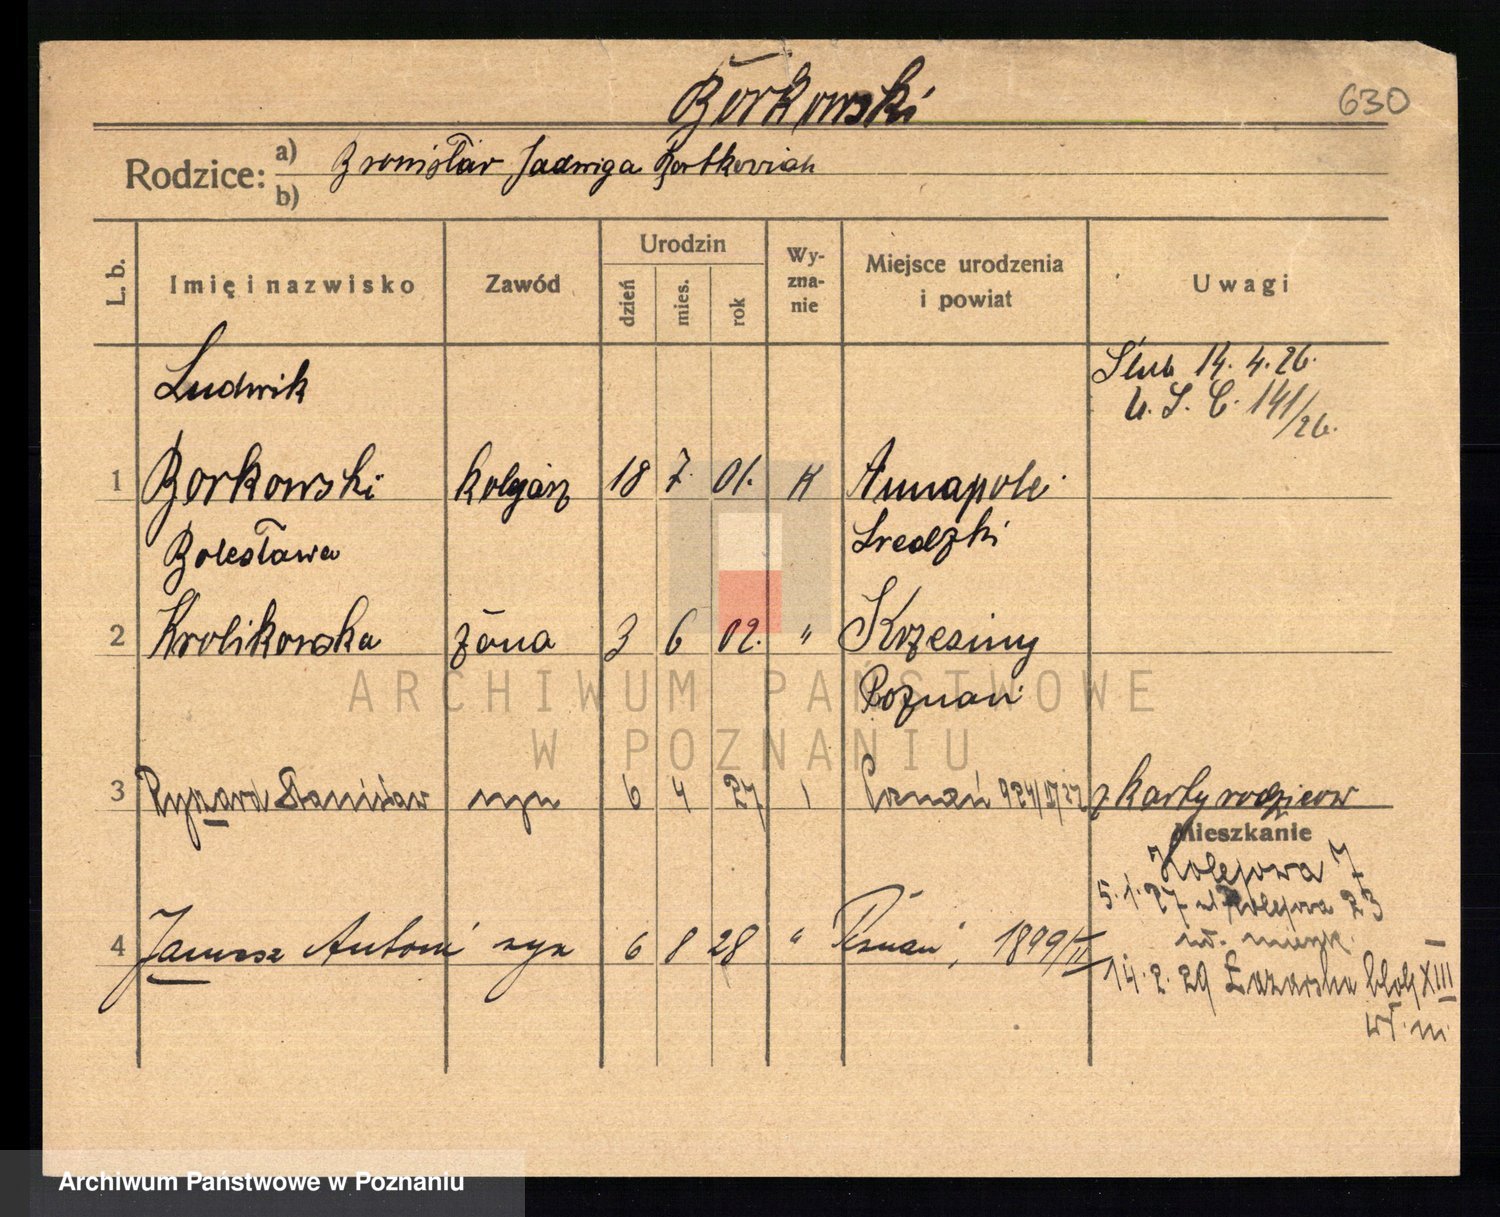 Borkowski
630
Rodzice:
a) Bronisław Jadwiga Bartkowiak
b)
L. b.
Imię i nazwisko
Zawód
Urodzin
dzień
mies.
rok
Wy-
zna-
nie
Miejsce urodzenia
i powiat
Uwagi
Ludwik
Ślub 14. 4. 26.
U. S. C. 141/26.
1 Borkowski kolejarz 18 7. 01. K Annapole
Bolesława Sredzki
2 Krolikowska żona 3 6 02. " Krzesiny
Poznań
3 Ryszard Stanisław syn 6 4 27 Poznań 924/IV/27 z karty rodziców
Mieszkanie
Kolejowa 7
5.1.27 ul Kolejowa 23
wł. mieszk.
4 Janusz Antoni syn 6 8 28 " Poznań, 1899/II
14. 2. 29 Łazarska blok XIII
wł. m.
ARCHIWUM PAŃSTWOWE
W POZNANIU
Archiwum Państwowe w Poznaniu